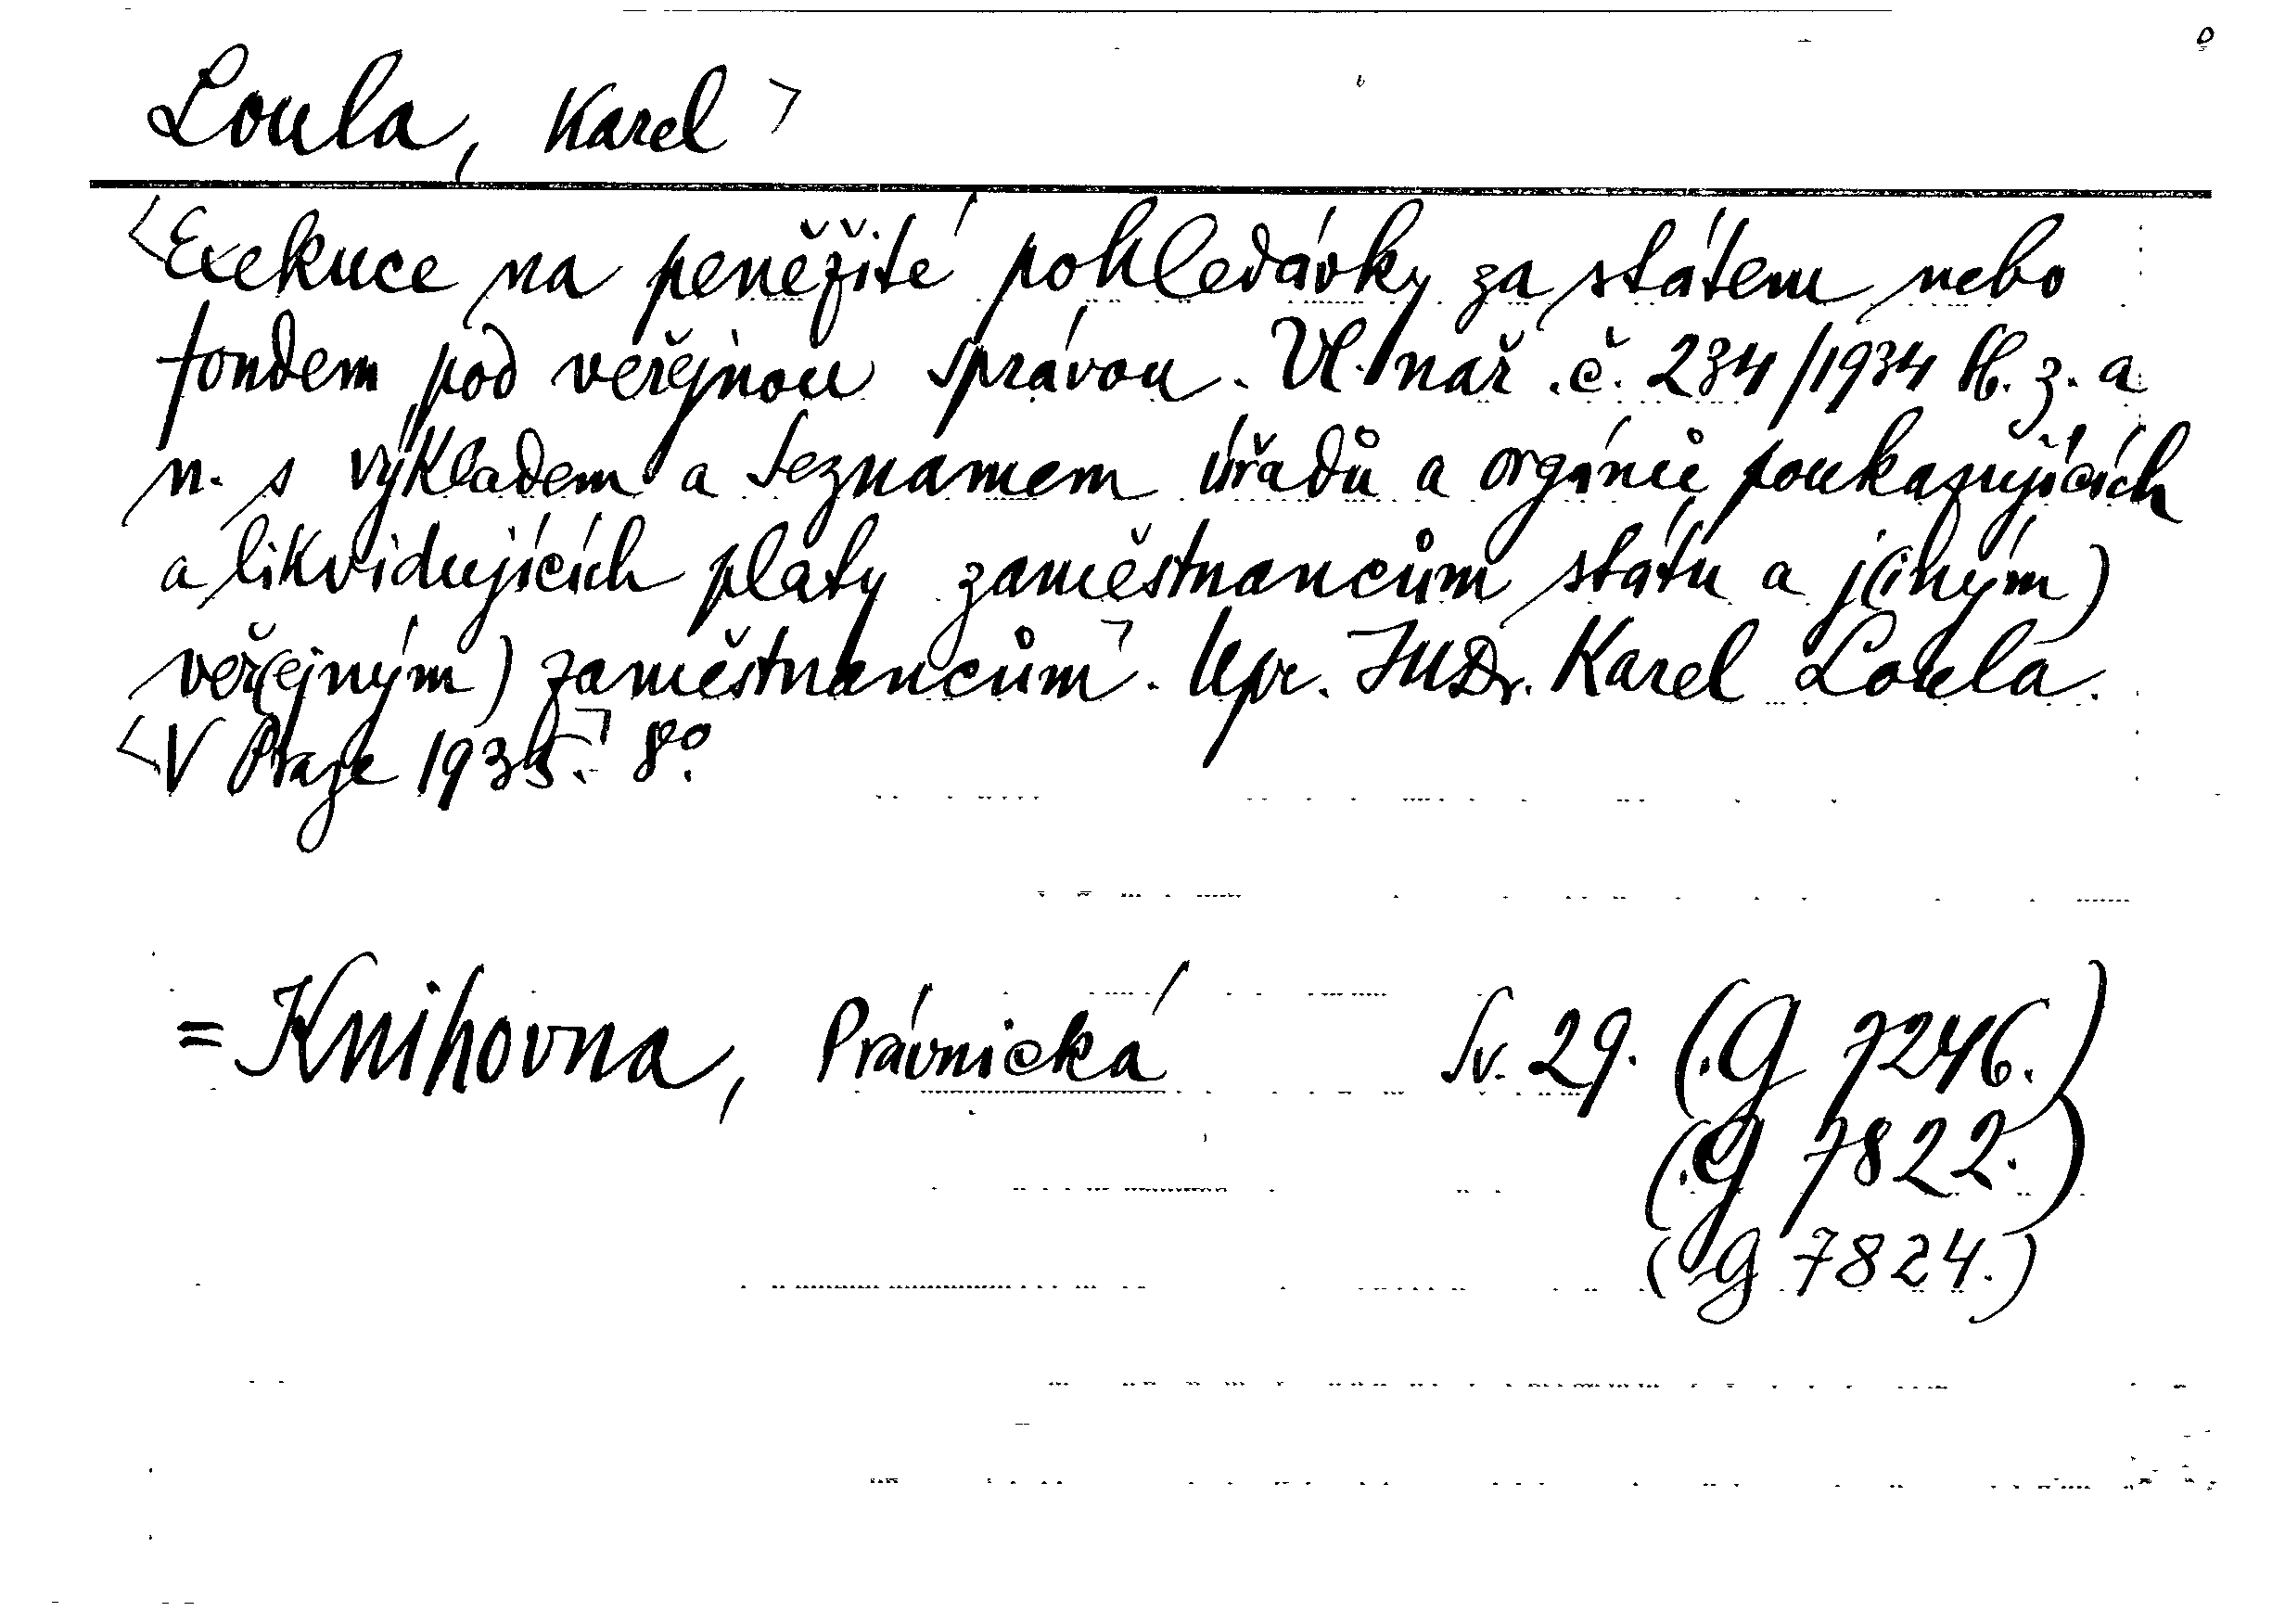 Loula, Karel
Exekuce na peněžité pohledávky za státem nebo
fondem pod veřejnou správou. Vl. nař. č. 234/1934 Sb. z. a
n. s výkladem a seznamem úřadů a orgánů poukazujících
a likvidujících platy zaměstnancům státu a j(iným)
veř(ejným) zaměstnancům. Upr. JUDr. Karel Loula.
V Praze 1935. 8°.
= Knihovna, Právnická Sv. 29. (G 7246.)
(G 7822.)
(G 7824.)